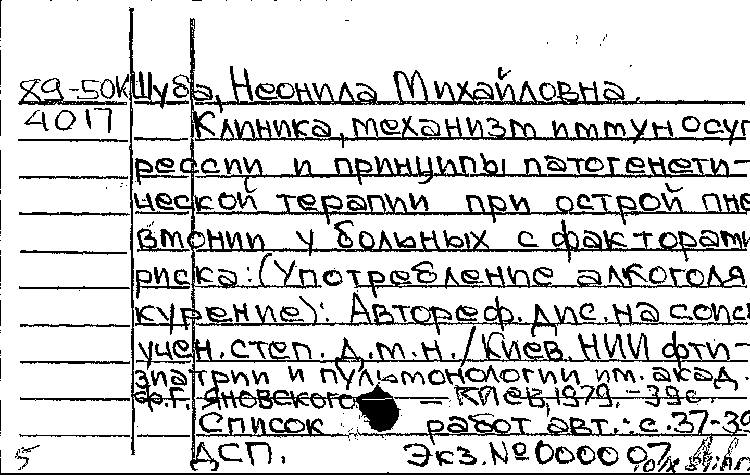 89-50К Шуба, Неонила Михайловна.
4017 Клиника, механизм иммуносуп
рессии и принципы патогенети-
ческой терапии при острой пне
вмонии у больных с факторами
риска: (Употребление алкоголя
курение): Автореф. дис. на соиск
учен. степ. д.м.н. / Киев. НИИ фти-
зиатрии и пульмонологии им. акад.
Ф.Г. Яновского — Киев, 1979. - 39с.
Список работ авт.: с. 37-39
5 ДСП. Экз. № 000007